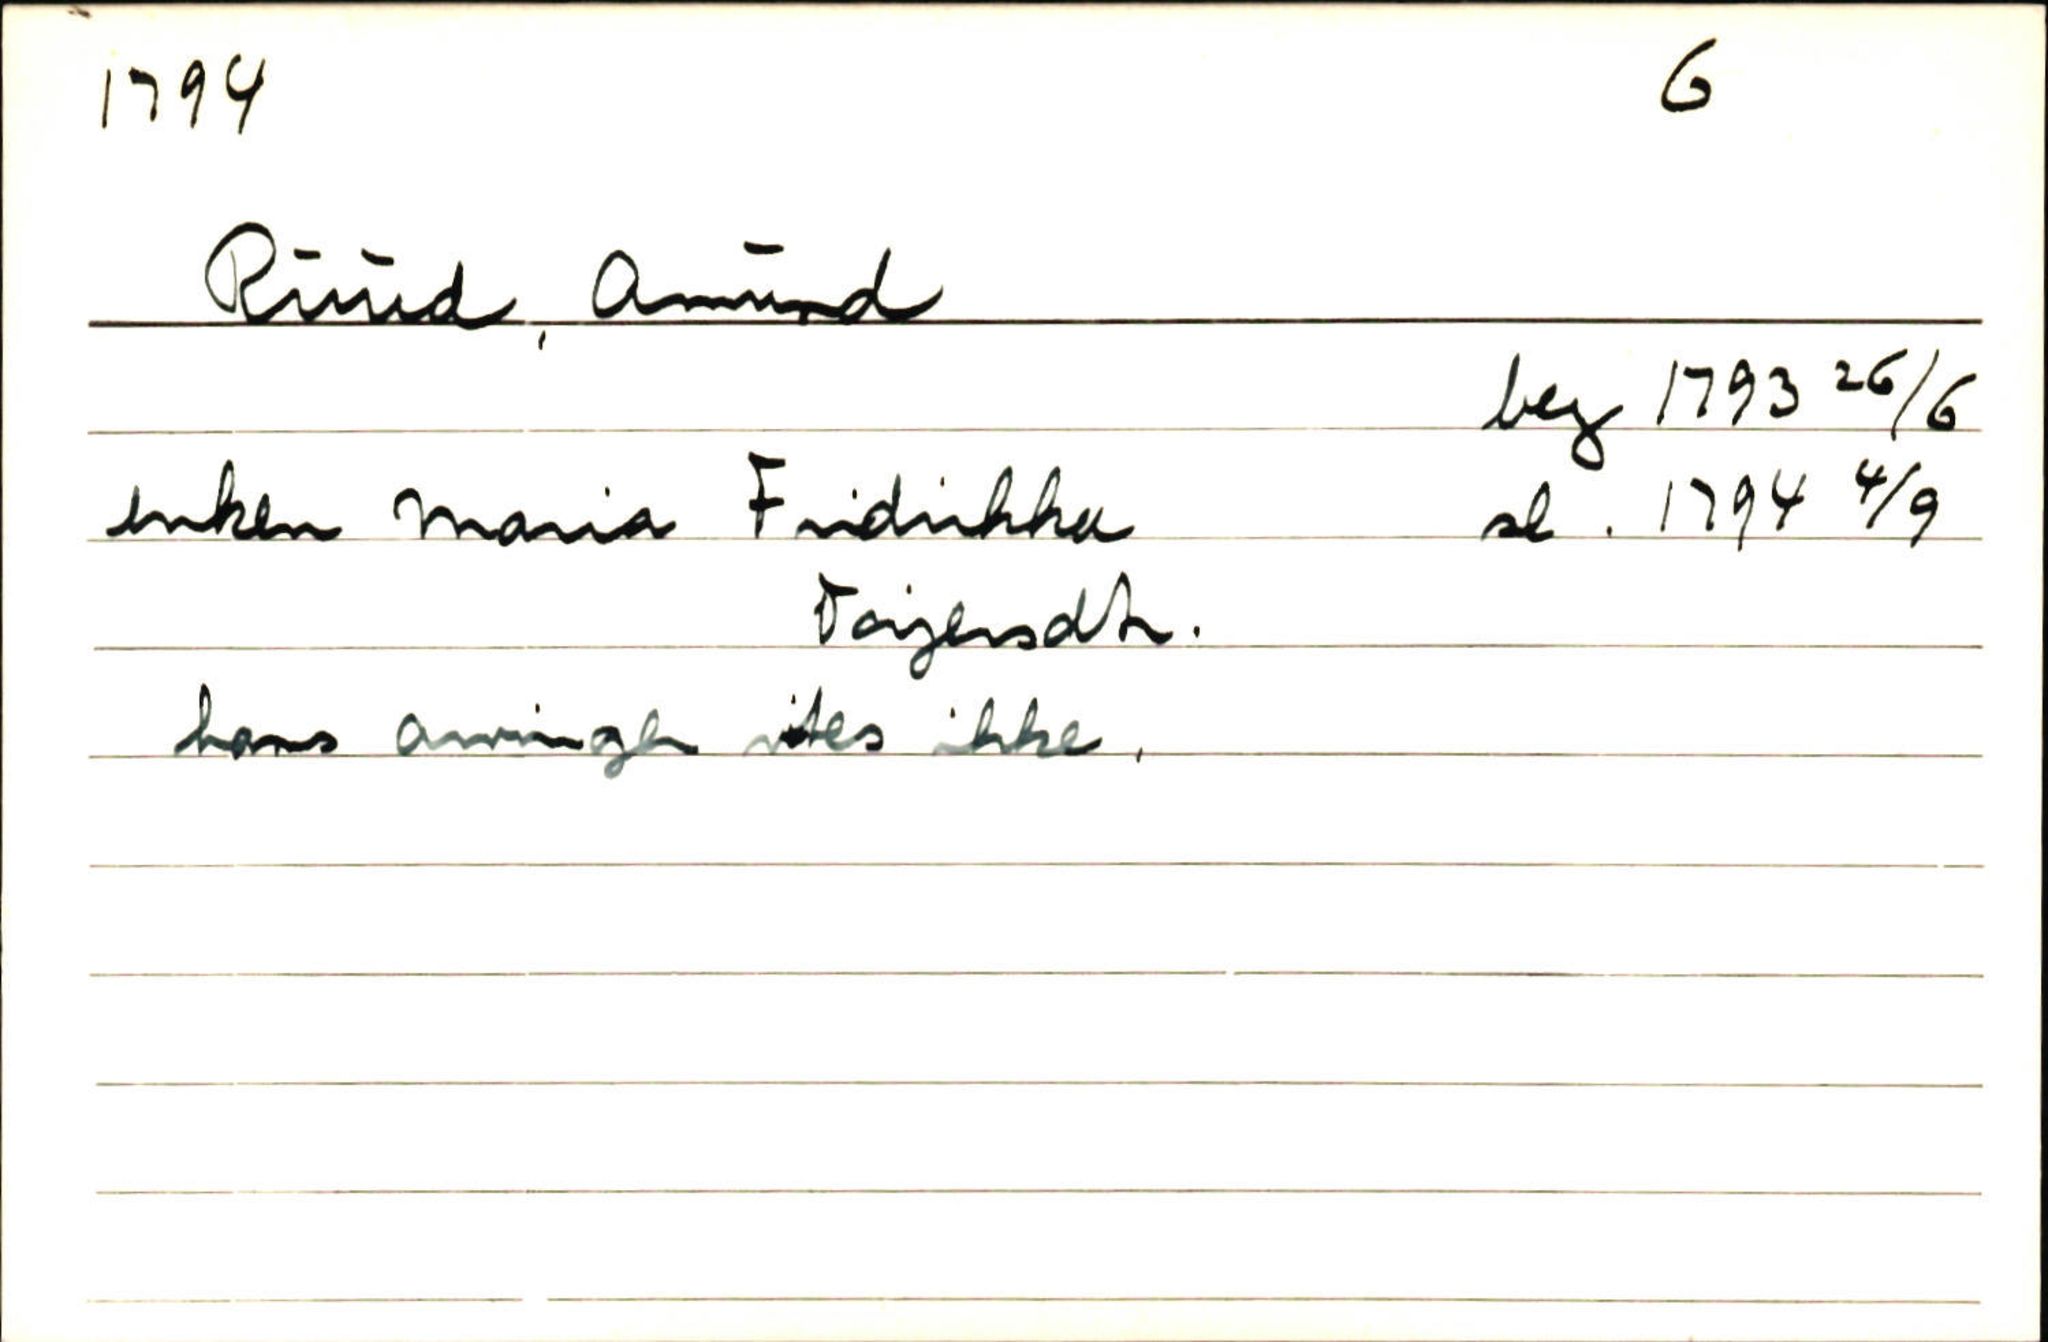 1794 6
Ruud, Amund
beg 1793 26/6
enken Maria Fridrikka sl. 1794 4/9
Torgersdtr.
hans arvinger vites ikke.